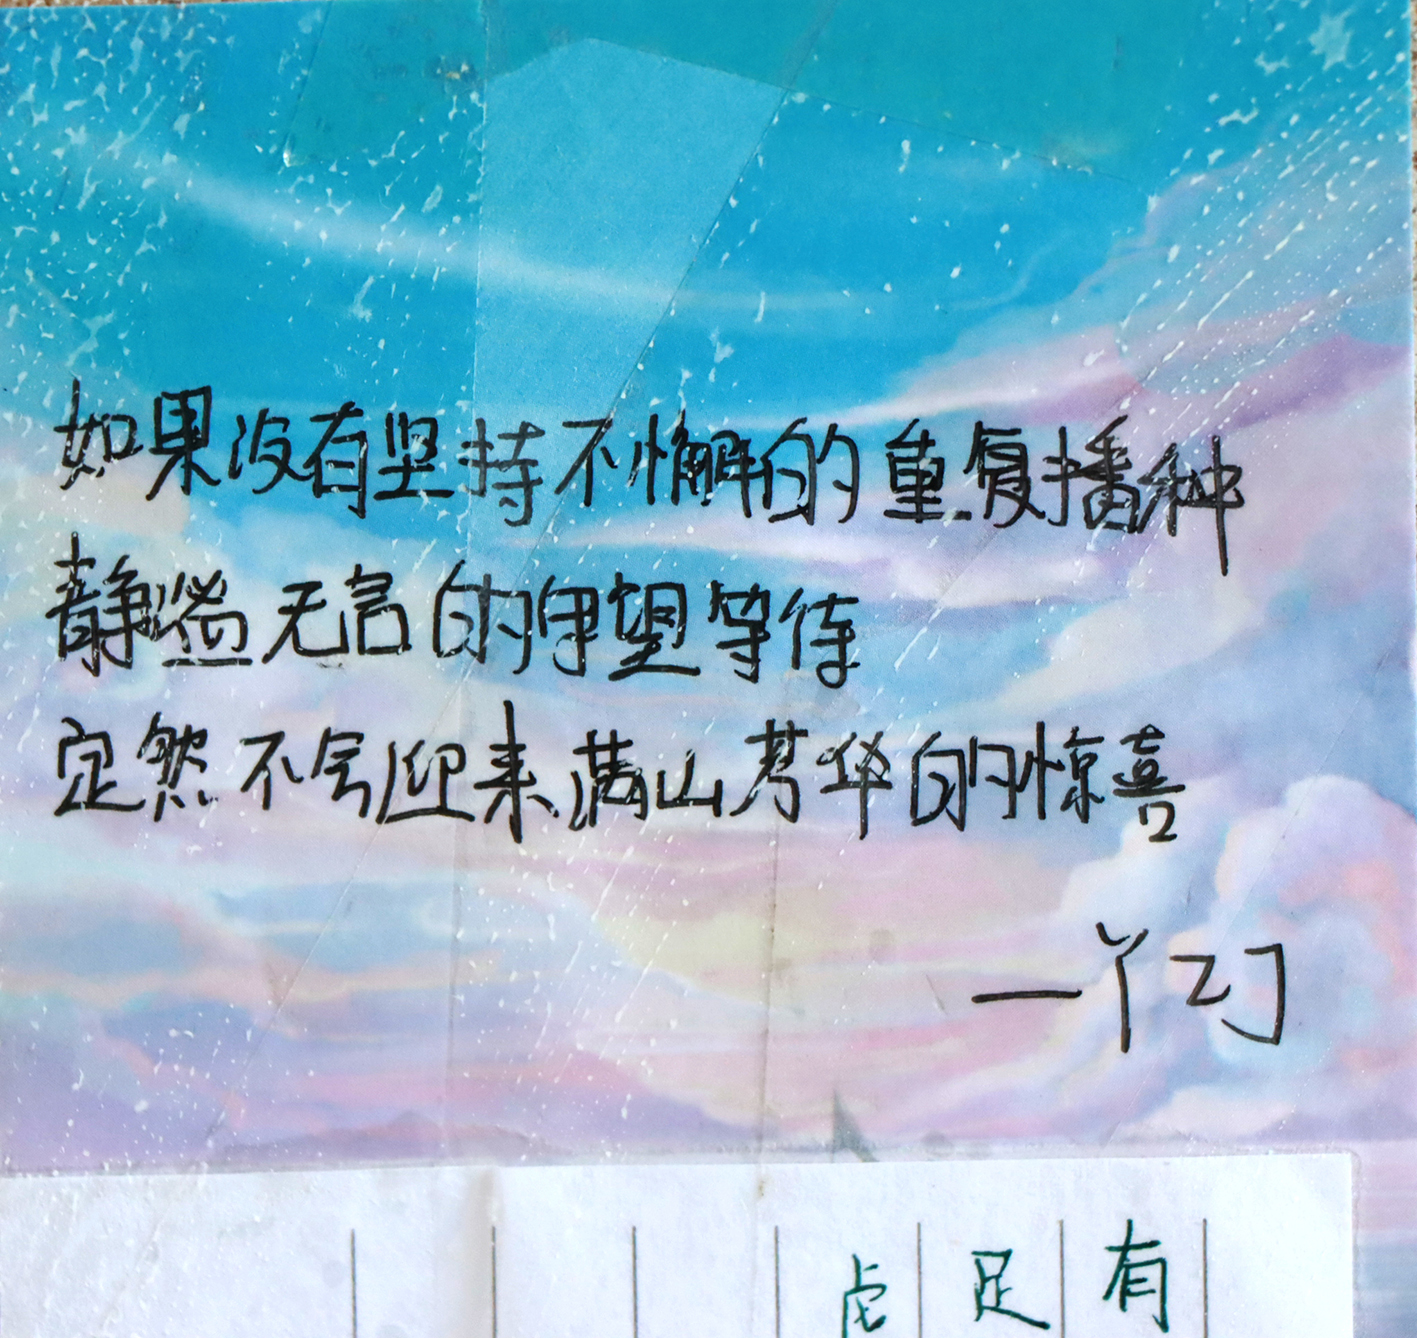 如果没有坚持不懈的重复播种
静谧无言的守望等待
定然不会迎来满山芳华的惊喜
—丫
足有